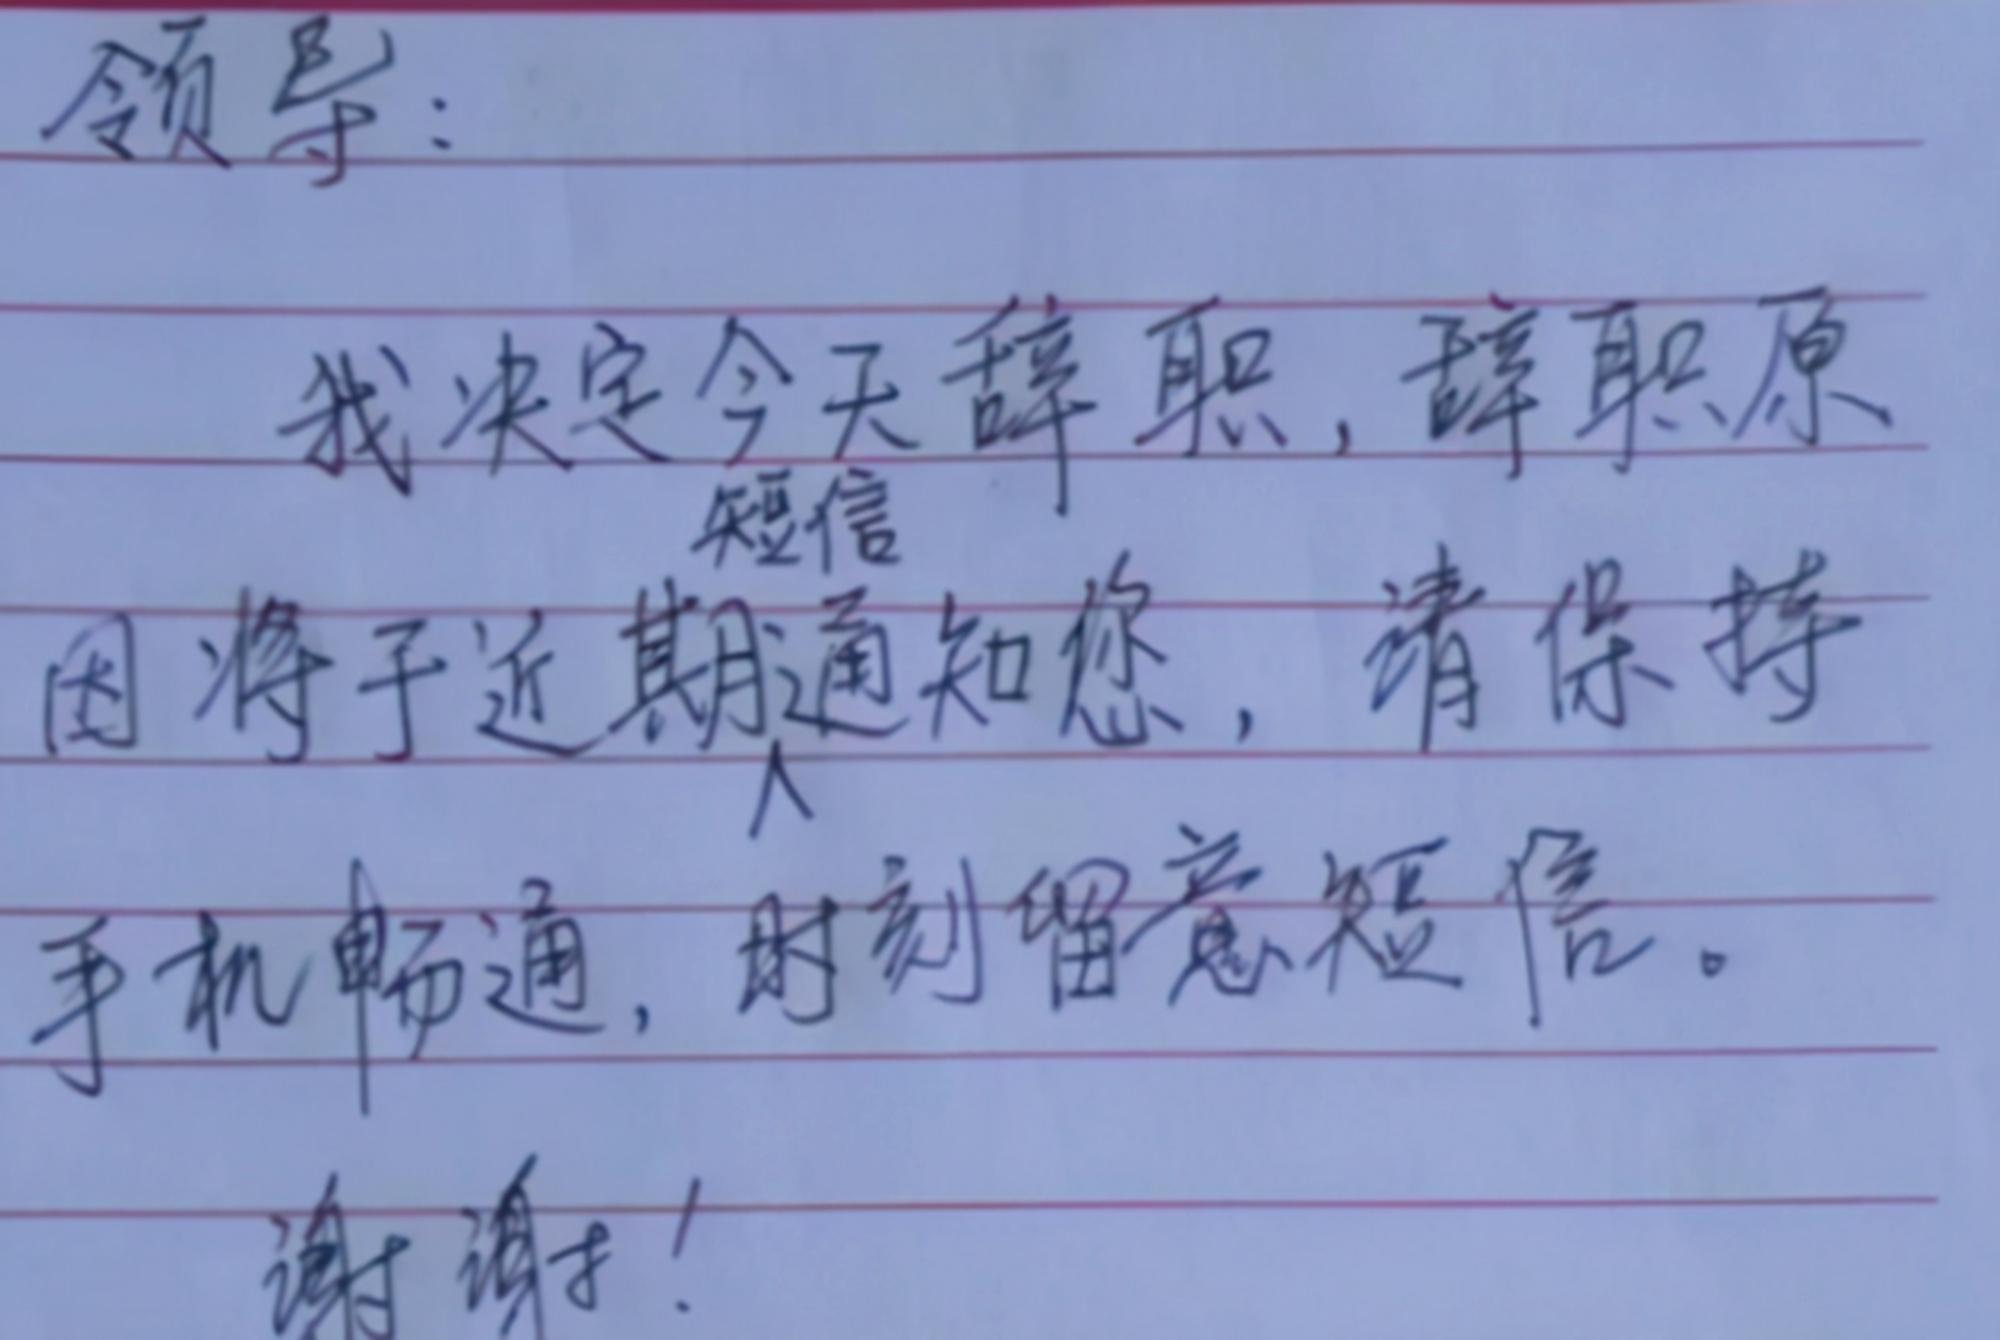 领导：
我决定今天辞职，辞职原
短信
因将于近期通知您，请保持
手机畅通，时刻留意短信。
谢谢！